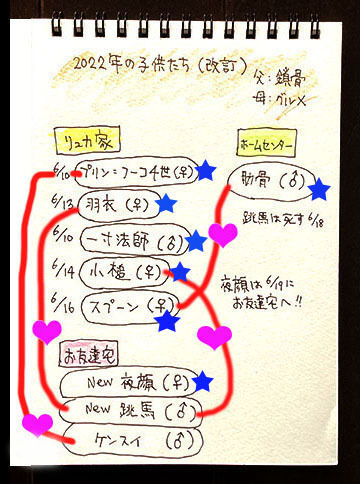 2022年の子供たち(改訂)
父:鎖骨
母:グルメ
リュカ家
6/10 プリン=フーコ4世(♀)
6/13 羽衣(♀)
6/10 一寸法師(♂)
6/14 小槌(♀)
6/16 スプーン(♀)
ホームセンター
肋骨(♂)
跳馬は死す 6/18
夜顔は6/19に
お友達宅へ!!
お友達宅
New 夜顔(♀)
New 跳馬(♂)
ケンスイ(♂)